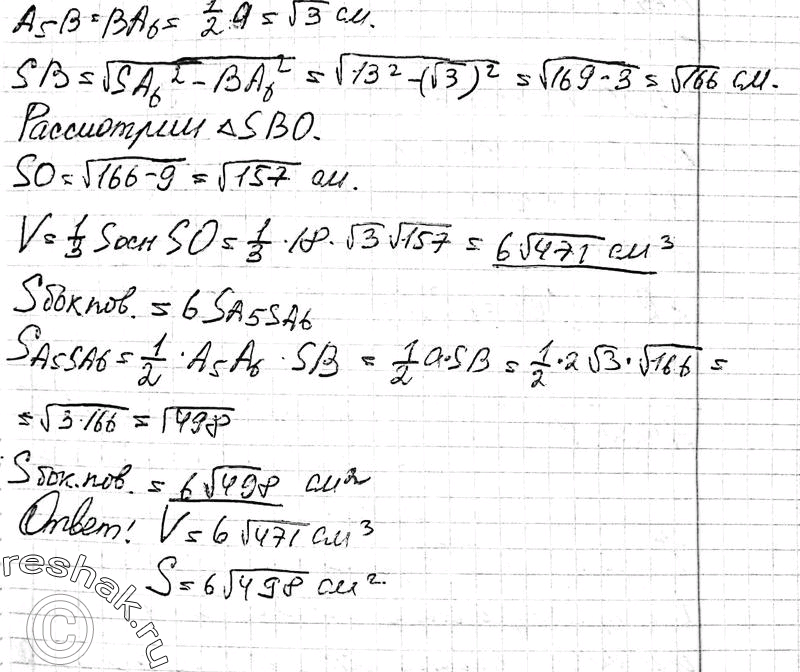 A₅B = BA₆ = 1/2 · a = √3 см.
SB = √(SA₆² - BA₆²) = √(13² - (√3)²) = √(169 - 3) = √166 см.
Рассмотрим △SBO.
SO = √(166 - 9) = √157 см.
V = 1/3 Sосн SO = 1/3 · 18 · √3 √157 = 6√471 см³
Sбок.пов. = 6 S A₅SA₆
S A₅SA₆ = 1/2 · A₅A₆ · SB = 1/2 a · SB = 1/2 · 2√3 · √166 =
= √(3·166) = √498
Sбок.пов. = 6√498 см²
Ответ: V = 6√471 см³
S = 6√498 см².
reshak.ru
©